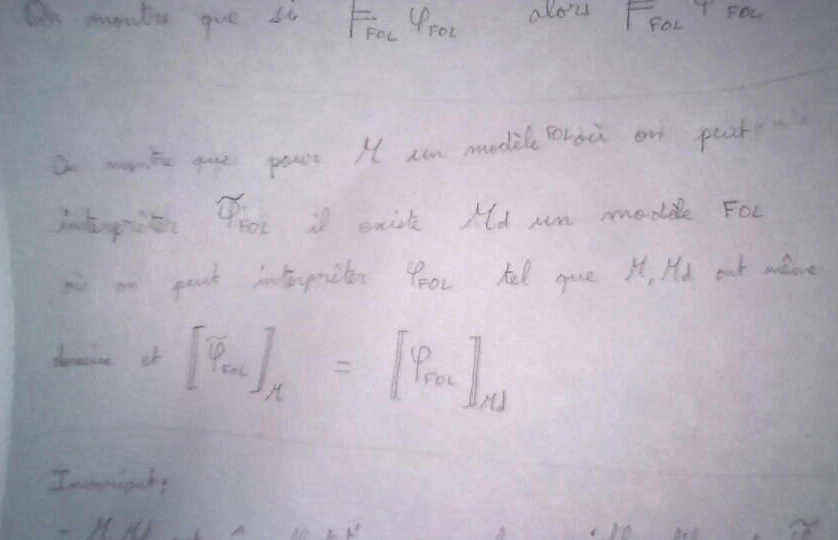 On montre que si ⊨FOL φFOL alors ⊨FOL φ FOL
On montre que pour M un modèle FOL où on peut
interpréter φ̃FOL il existe Md un modèle FOL
où on peut interpréter φFOL tel que M, Md ont même
domaine et ⟦φ̃FOL⟧M = ⟦φFOL⟧Md
Invariant:
- M, Md